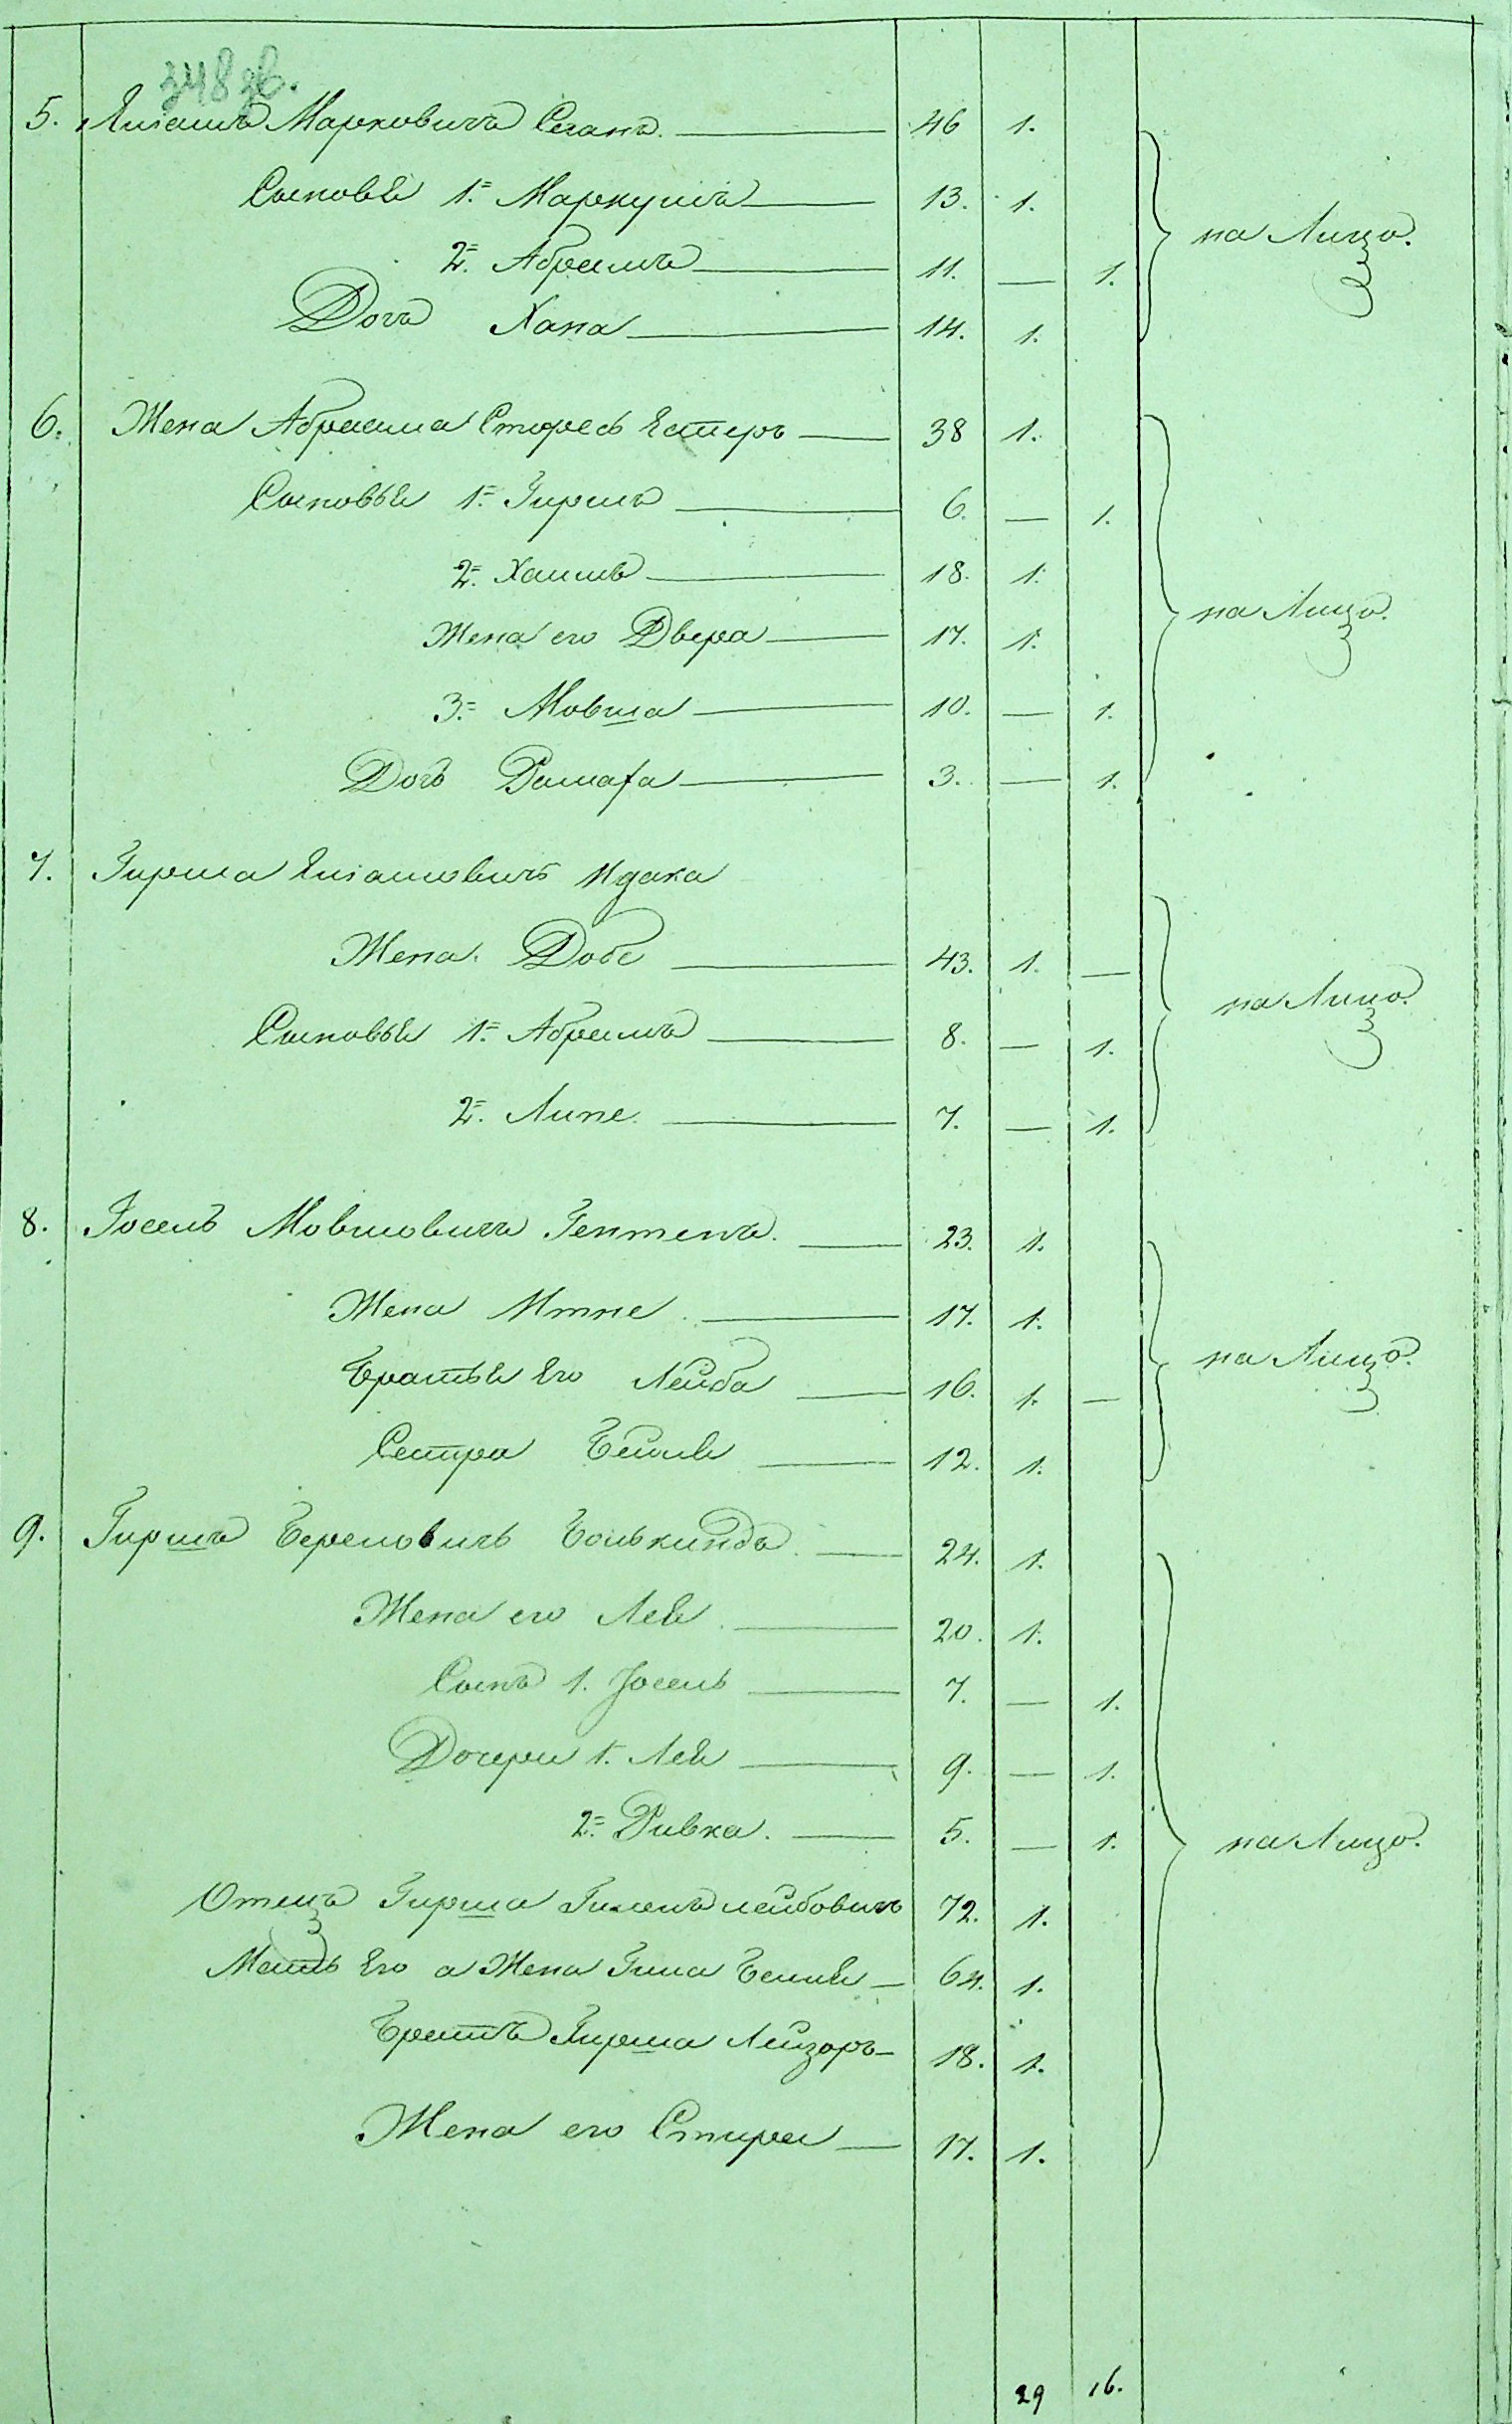 348 зв.
5. Элiашъ Марковичъ Сеганъ. 46 1.
Сыновья 1. Маркушъ 13. 1. на Лицо.
2. Абрамъ 11. — 1.
Дочь Хана 14. 1.
6. Жена Абрама Естеръ 38 1.
Сыновья 1. Гиршъ 6. — 1.
2. Хаимъ 18. 1.
Жена его Двера 17. 1. на Лицо.
3. Мовша 10. — 1.
Дочь 3. — 1.
7. Гирша Элiашовичъ
Жена Добе 43. 1. — на Лицо.
Сыновья 1. Абрамъ 8. — 1.
2. Липе 7. — 1.
8. Iосель Мовшовичъ Гентенъ. 23. 1.
Жена Итпе 17. 1.
Братья Его Лейба 16. 1. — на Лицо.
Сестра Бейля 12. 1.
9. Гиршъ Берковичъ 24. 1.
Жена его Лея 20. 1.
Сынъ 1. Iосель 7. — 1.
Дочери 1. Лея 9. — 1.
2. Ривка. 5. — 1. на Лицо.
Отецъ Гирша Лейбовичъ 72. 1.
Мать Его а Жена Бейля 64. 1.
Братъ Гирша Лейзоръ 18. 1.
Жена его Стира 17. 1.
29 16.